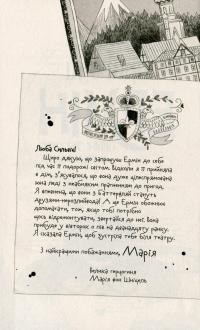 Люба Сильвіє!
Щиро дякую, що запрошує Ермін до себе
під час її подорожі світом. Відколи я її прийняла
в дім, з'ясувалося, що вона дуже цілеспрямована
юна леді з неабияким прагненням до пригод.
Я впевнена, що вони з Баттервіллі стануть
друзями-нерозлийвода! А ще Ермін обожнює
допомагати, тож, якщо тобі потрібно
щось відремонтувати, звертайся до неї. Вона
приїде у вівторок о пів на дванадцяту ранку.
Я сказала Ермін, щоб зустріла тебе біля театру.
З найкращими побажаннями, Марія
Велика герцогиня
Марія фон Шніцель